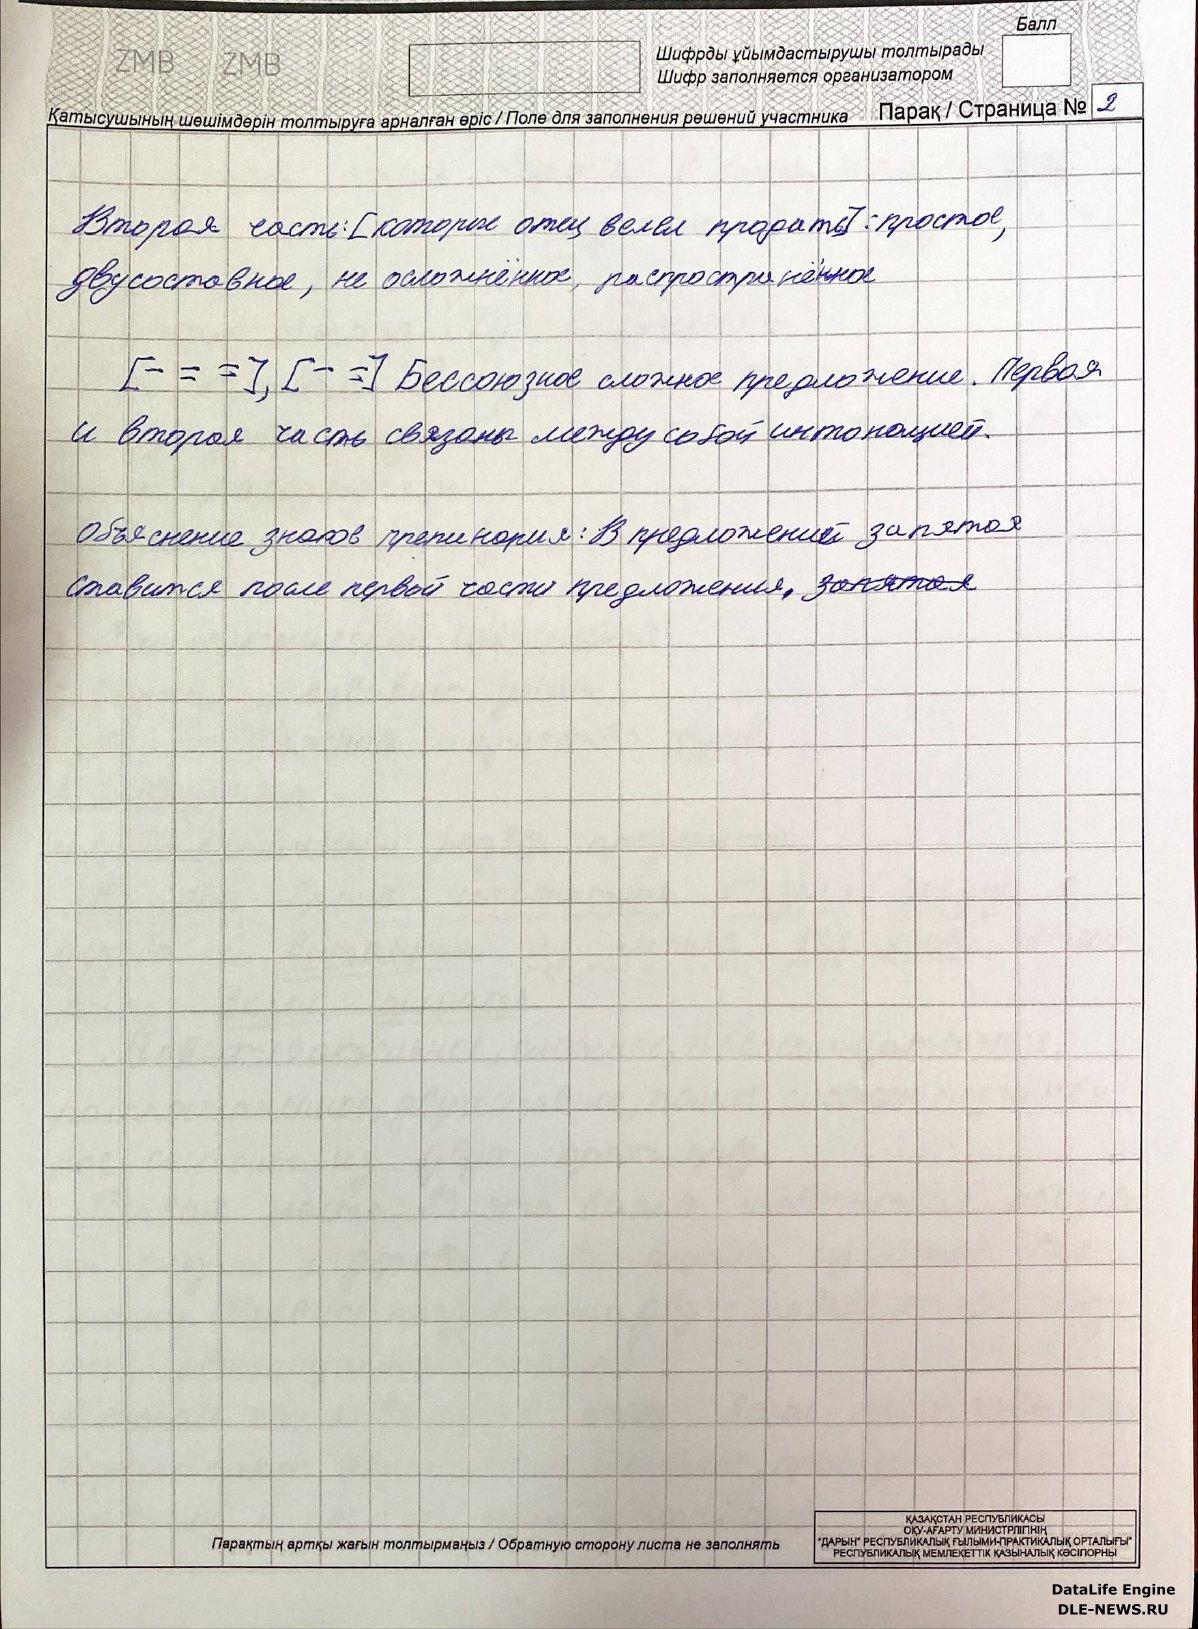 ZMB ZMB
Балл
Шифрды ұйымдастырушы толтырады
Шифр заполняется организатором
Қатысушының шешімдерін толтыруға арналған өріс / Поле для заполнения решений участника
Парақ / Страница № 2
Вторая часть: [которые отец велел продать]: простое,
двусоставное, не осложнённое, распространённое
[- = =], [- =] Бессоюзное сложное предложение. Первая
и вторая часть связаны между собой интонацией.
Объяснение знаков препинания: В предложений запятая
ставится после первой части предложения. запятая
Парақтың артқы жағын толтырмаңыз / Обратную сторону листа не заполнять
ҚАЗАҚСТАН РЕСПУБЛИКАСЫ
ОҚУ-АҒАРТУ МИНИСТРЛІГІНІҢ
"ДАРЫН" РЕСПУБЛИКАЛЫҚ ҒЫЛЫМИ-ПРАКТИКАЛЫҚ ОРТАЛЫҒЫ"
РЕСПУБЛИКАЛЫҚ МЕМЛЕКЕТТІК ҚАЗЫНАЛЫҚ КӘСІПОРНЫ
DataLife Engine
DLE-NEWS.RU